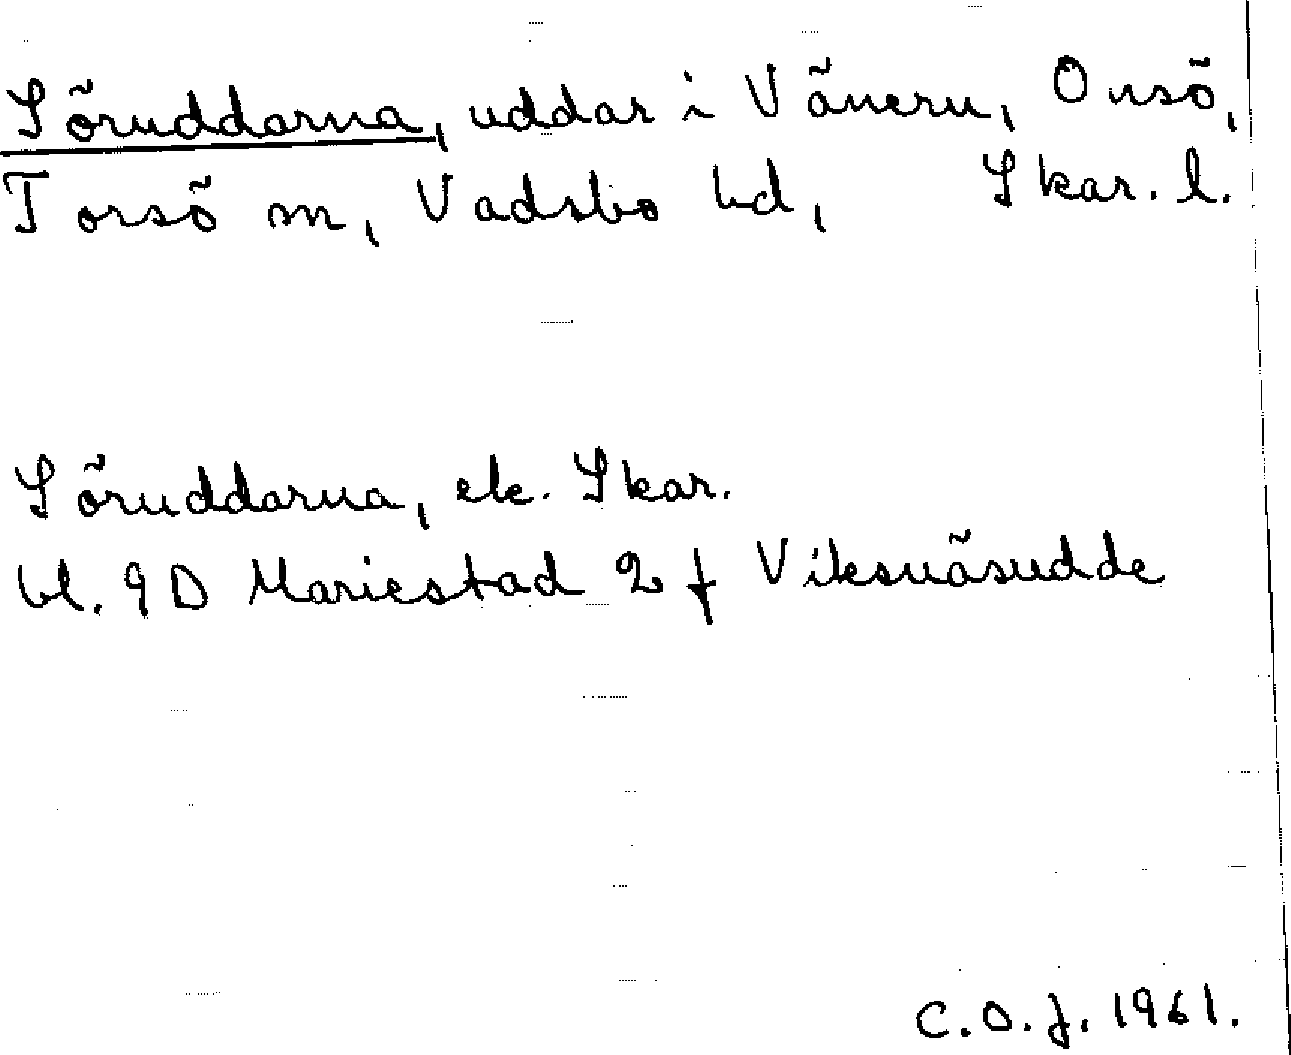 Söruddarna, uddar i Vänern, Onsö,
Torsö sn, Vadsbo hd, Skar. l.
Söruddarna, ek. Skar.
bl. 9D Mariestad 2 f Viksnäsudde
C.O.J. 1961.